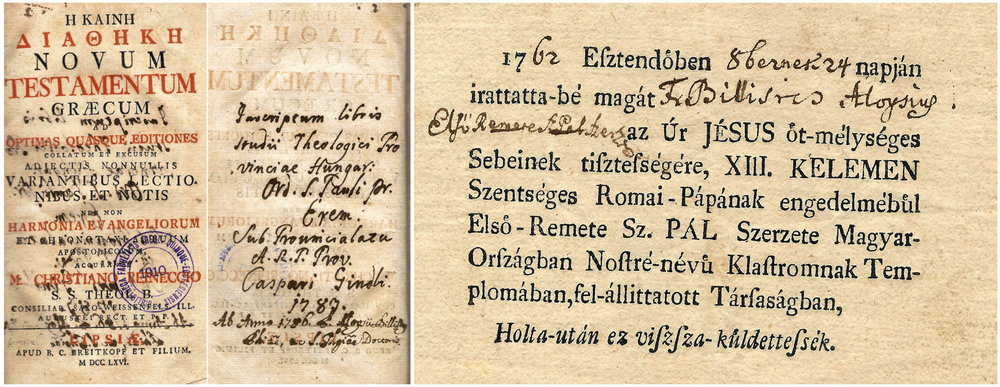 Η ΚΑΙΝΗ
ΔΙΑΘΗΚΗ
NOVUM
TESTAMENTUM
GRÆCUM
AD
OPTIMAS QUASQUE EDITIONES
COLLATUM ET EXCUSUM
ADIECTIS NONNULLIS
VARIANTIBUS LECTIO-
NIBUS ET NOTIS
NEC NON
HARMONIA EVANGELIORUM
ET CHRONOTAXI
APOSTOLICO
M. CHRISTIANO REINECCIO
S. S. THEOL. B.
CONSILIAR. SAXO-WEISSENFELS. ILL.
AUGUSTEI RECT. ET P. P.
LIPSIÆ
APUD B. C. BREITKOPF ET FILIUM.
M DCC LXVI.
1910
Inscriptum libris
Studii Theologici Pro
vinciae Hungar:
Ord. S. Pauli pr.
Erem.
Sub Provincialatu
A. R. P. Prov.
Caspari Gindl.
1783.
Ab Anno
1762 Esztendőben 8bernek 24 napján
irattatta-bé magát Fr Aloysius
Első Remete az Úr JÉSUS öt-mélységes
Sebeinek tisztességére, XIII. KELEMEN
Szentséges Romai-Pápának engedelméből
Első-Remete Sz. PÁL Szerzete Magyar-
Országban Nostré-névű Klastromnak Tem-
plomában, fel-állittatott Társaságban,
Holta-után ez viszsza-küldettessék.